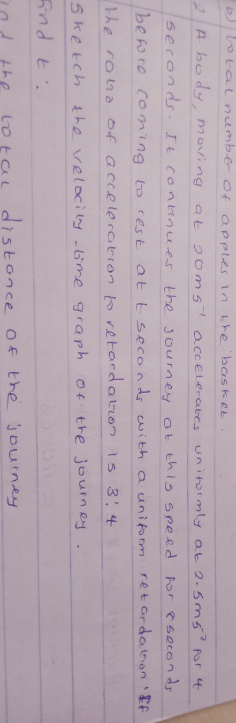 b) total number of apples in the basket.
2 A body, moving at 20ms⁻¹ accelerates uniformly at 2.5ms² for 4
seconds. It continues the journey at this speed for 8 seconds
before coming to rest at t seconds with a uniform retardation. If
the ratio of acceleration to retardation is 3:4
sketch the velocity-time graph of the journey.
find t.
ind the total distance of the journey